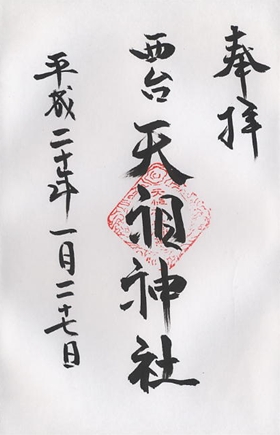 奉拝
西台
天祖神社
平成二十年一月二十七日